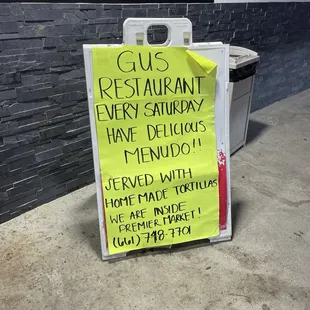 GUS
RESTAURANT
EVERY SATURDAY
HAVE DELICIOUS
MENUDO!!
SERVED WITH
HOME MADE TORTILLAS
WE ARE INSIDE
PREMIER MARKET!
(661) 748-7701